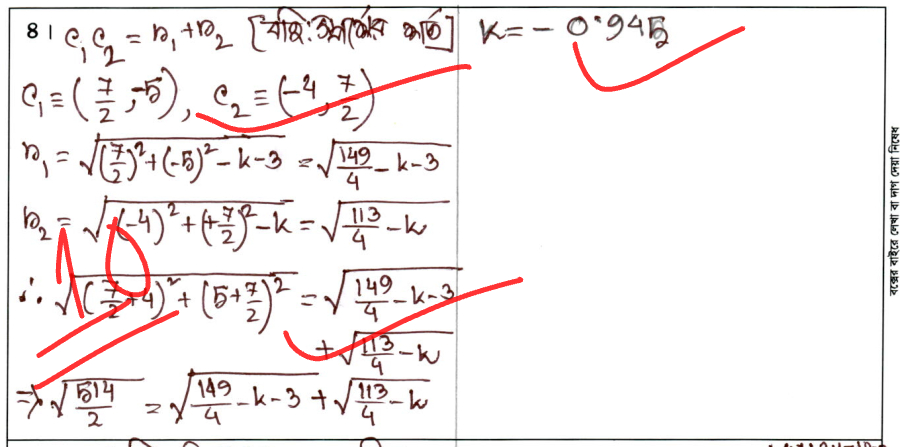 8। C₁C₂ = r₁+r₂ [বহিঃস্পর্শের শর্ত]
C₁ ≡ (7/2, -5), C₂ ≡ (-4, 7/2)
r₁ = √((7/2)² + (-5)² - k - 3) = √(149/4 - k - 3)
r₂ = √((-4)² + (+7/2)² - k) = √(113/4 - k)
∴ √((7/2 + 4)² + (5 + 7/2)²) = √(149/4 - k - 3)
+ √(113/4 - k)
⇒ √514/2 = √(149/4 - k - 3) + √(113/4 - k)
k = - 0.945
10
বক্সের বাইরে লেখা বা দাগ দেয়া নিষেধ